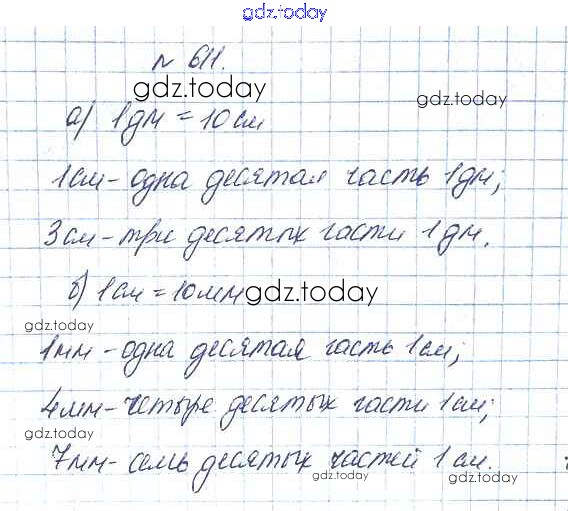 gdz.today
№ 611.
gdz.today
gdz.today
а) 1дм = 10см
1см - одна десятая часть 1дм;
3см - три десятых части 1дм.
б) 1см = 10мм
gdz.today
gdz.today
1мм - одна десятая часть 1см;
4мм - четыре десятых части 1см;
gdz.today
7мм - семь десятых частей 1см.
gdz.today
gdz.today